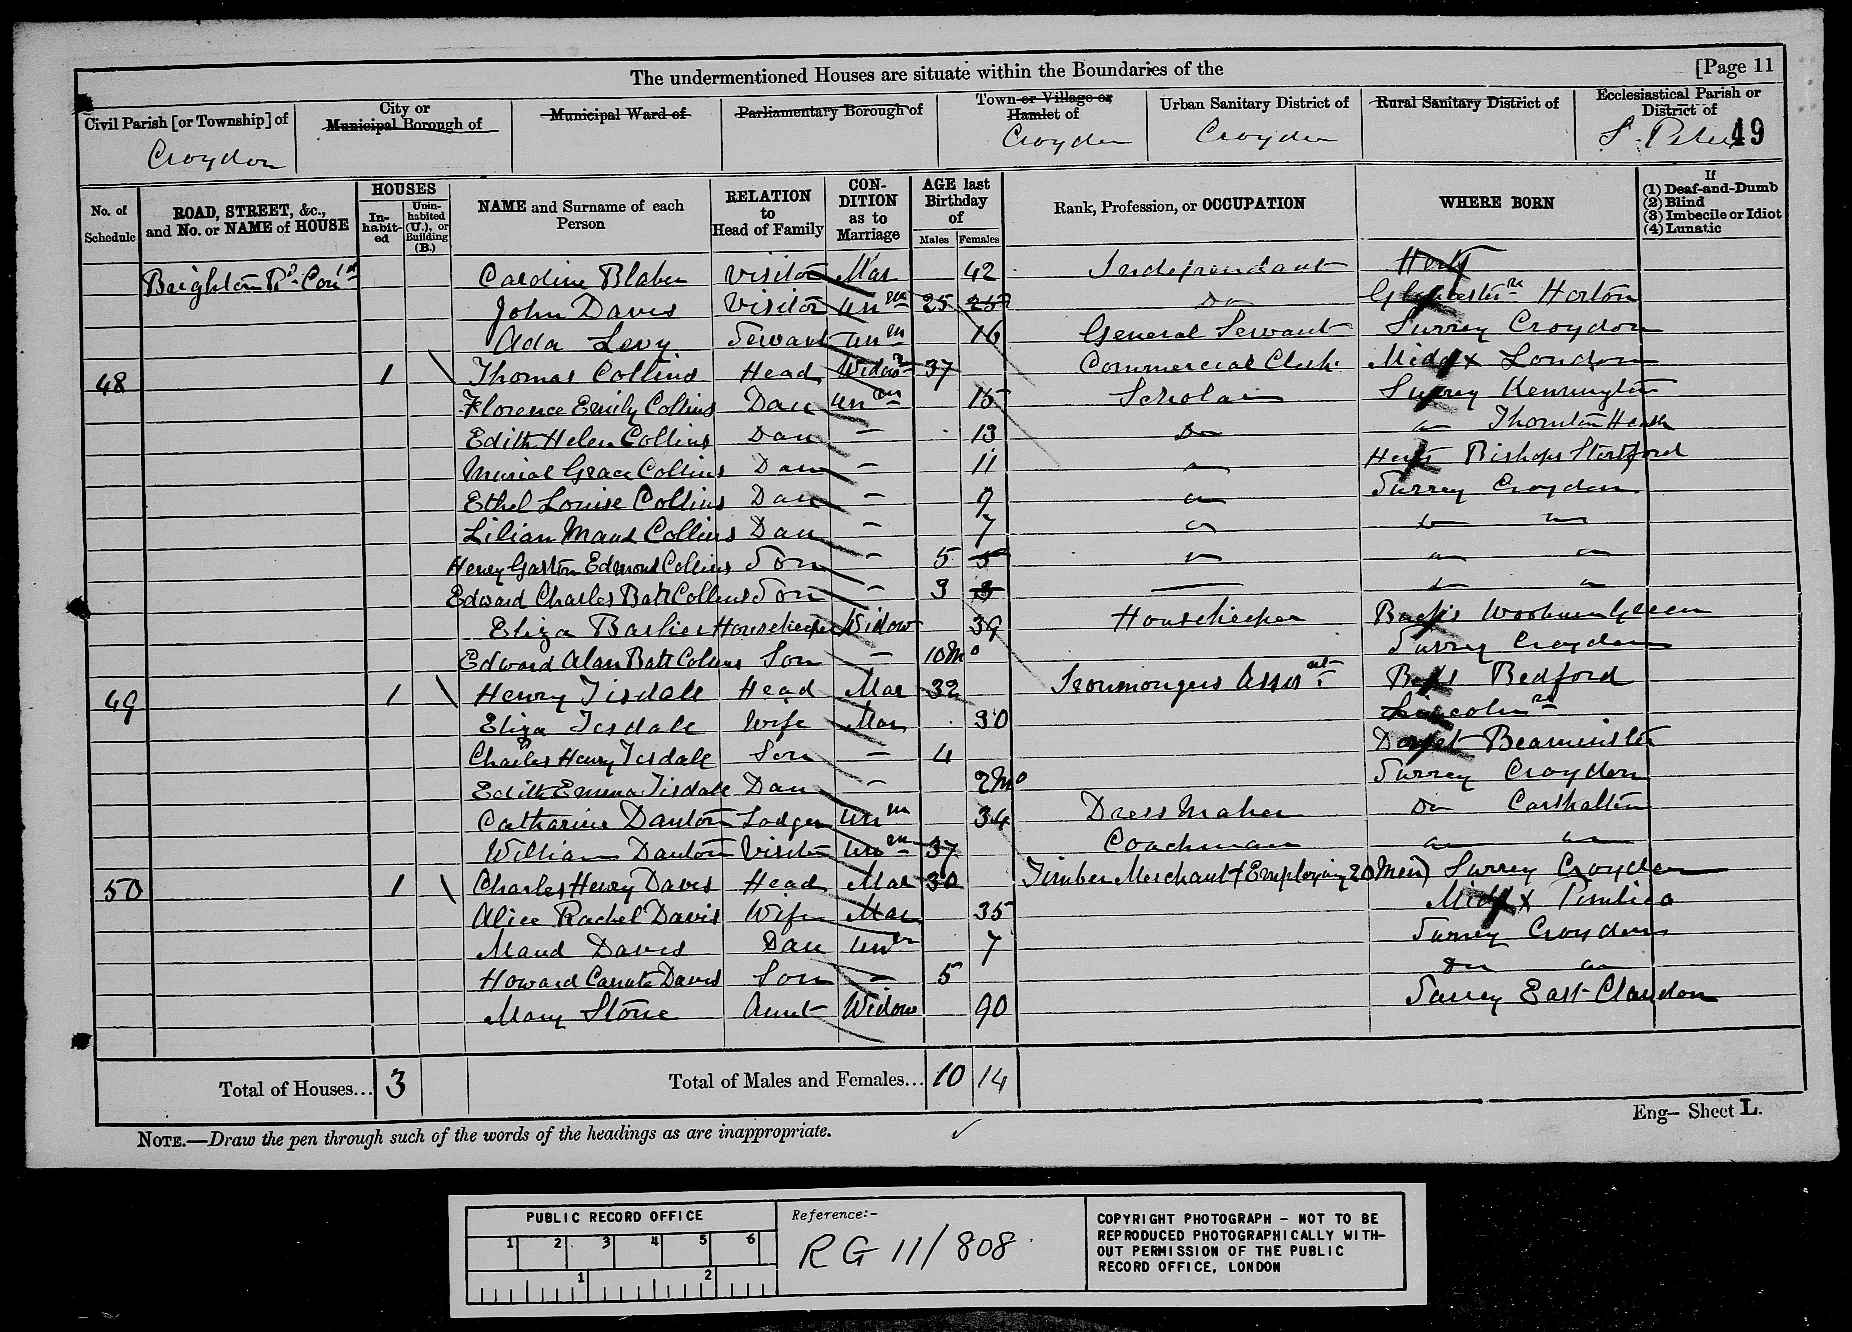 The undermentioned Houses are situate within the Boundaries of the [Page 11
Civil Parish [or Township] of Croydon
City or Municipal Borough of
Municipal Ward of
Parliamentary Borough of
Town or Village or Hamlet of Croydon
Urban Sanitary District of Croydon
Rural Sanitary District of
Ecclesiastical Parish or District of S. Peter 49
No. of Schedule
ROAD, STREET, &c., and No. or NAME of HOUSE
HOUSES
In-habit-ed
Unin-habited (U.), or Building (B.)
NAME and Surname of each Person
RELATION to Head of Family
CON-DITION as to Marriage
AGE last Birthday of
Males Females
Rank, Profession, or OCCUPATION
WHERE BORN
If
(1) Deaf-and-Dumb
(2) Blind
(3) Imbecile or Idiot
(4) Lunatic
Brighton Rd Cont Caroline Blaber Visitor Mar 42 Independant Herts
John Davis Visitor Unm 25 25 Do Gloucester Horton
Ada Levy Servant Unm 16 General Servant Surrey Croydon
48 1 Thomas Collins Head Widr 37 Commercial Clerk Middx London
Florence Emily Collins Dau Unm 15 Scholar Surrey Kennington
Edith Helen Collins Dau - 13 Do Do Thornton Heath
Murial Grace Collins Dau - 11 Do Herts Bishops Stortford
Ethel Louise Collins Dau - 9 Do Surrey Croydon
Lilian Maud Collins Dau - 7 Do Do Do
Henry Gaston Edmond Collins Son - 5 5 Do Do Do
Edward Charles Batt Collins Son - 3 3 Do Do
Eliza Barlier Housekeeper Widow 39 Housekeeper Bucks Wooburn Green
Edward Alan Batt Collins Son - 10 Mo Surrey Croydon
49 1 Henry Tisdall Head Mar 32 Ironmongers Assist Beds Bedford
Eliza Tisdall Wife Mar 30 Lincoln
Charles Henry Tisdall Son - 4 Dorset Beaminster
Edith Emma Tisdall Dau - 2 Mo Surrey Croydon
Catharine Danton Lodger Unm 34 Dress Maker Do Carshalton
William Danton Visitor Unm 37 Coachman Do Do
50 1 Charles Henry Davis Head Mar 30 Timber Merchant (Employing 20 Men) Surrey Croydon
Alice Rachel Davis Wife Mar 35 Middx Pimlico
Maud Davis Dau Unm 7 Surrey Croydon
Howard Canute Davis Son - 5 Do Do
Mary Stone Aunt Widow 90 Surrey East Claydon
Total of Houses... 3 Total of Males and Females... 10 14
Eng- Sheet L.
NOTE.—Draw the pen through such of the words of the headings as are inappropriate.
PUBLIC RECORD OFFICE
1 2 3 4 5 6
1 2
Reference:-
RG 11/808
COPYRIGHT PHOTOGRAPH - NOT TO BE
REPRODUCED PHOTOGRAPHICALLY WITH-
OUT PERMISSION OF THE PUBLIC
RECORD OFFICE, LONDON